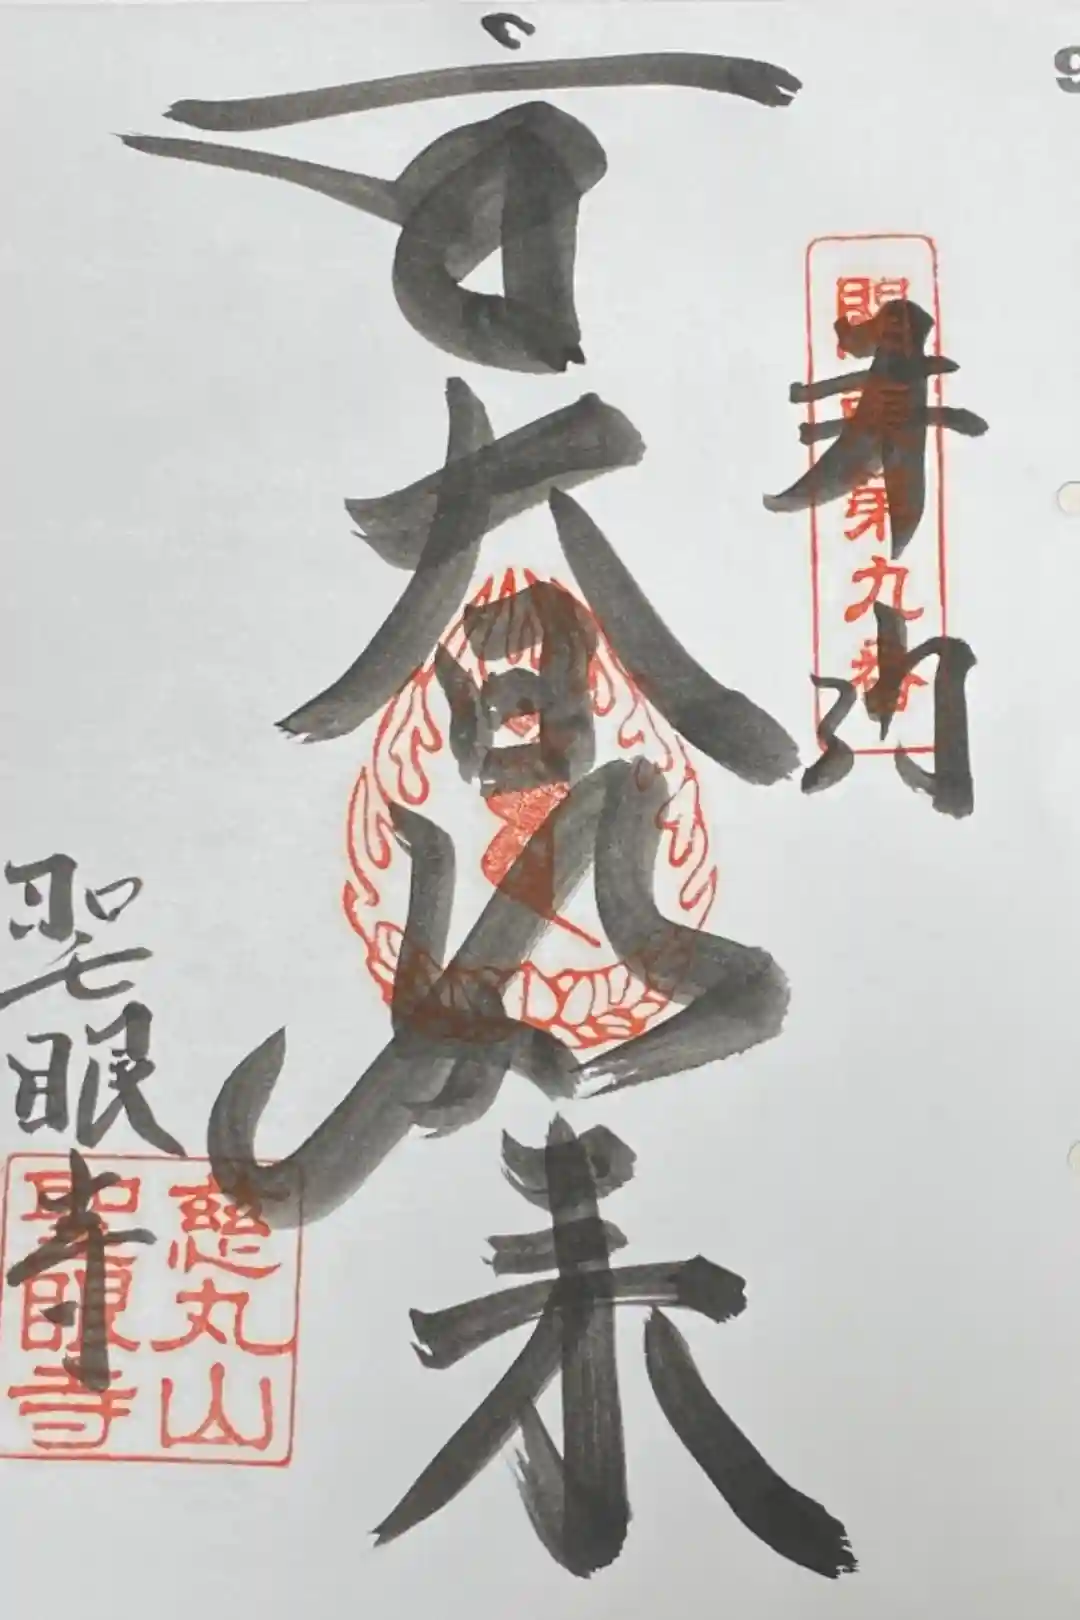 9
奉納
関東第九番
大日如来
聖眼寺
慈丸山
聖眼寺